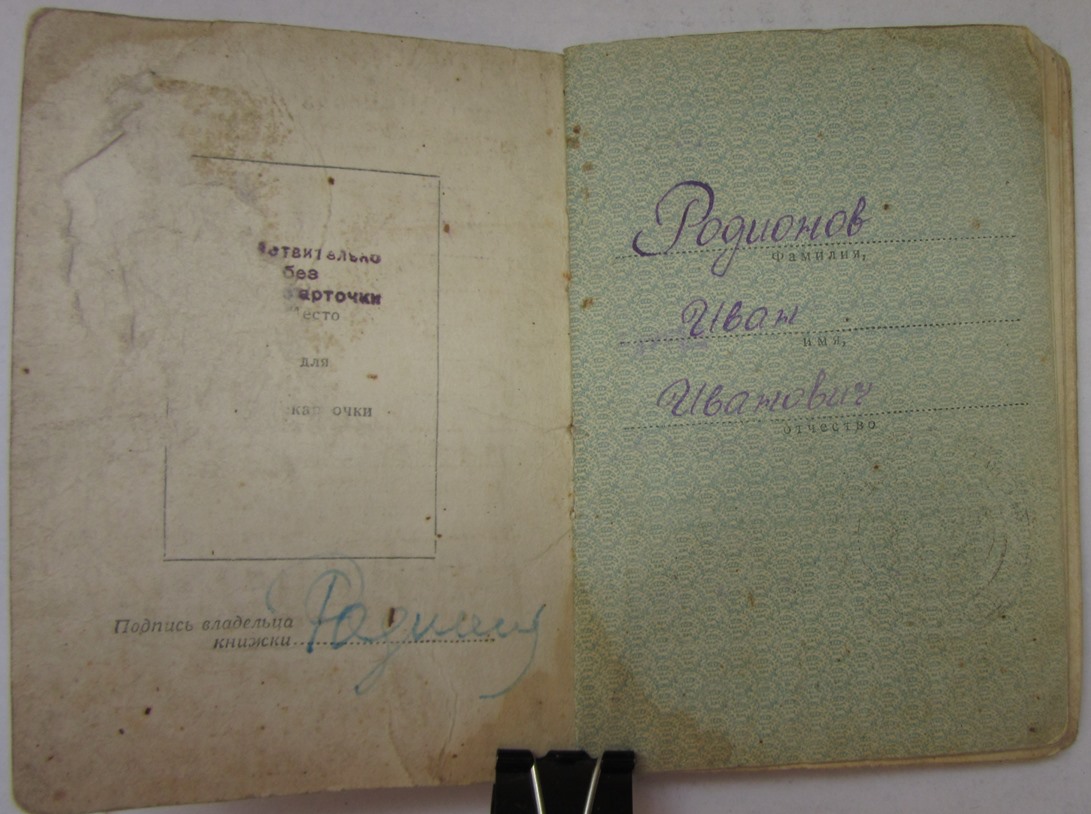 ствительно
без
карточки
Место
для
карточки
Подпись владельца
книжки
Родионов
Фамилия,
Иван
имя,
Иванович
отчество